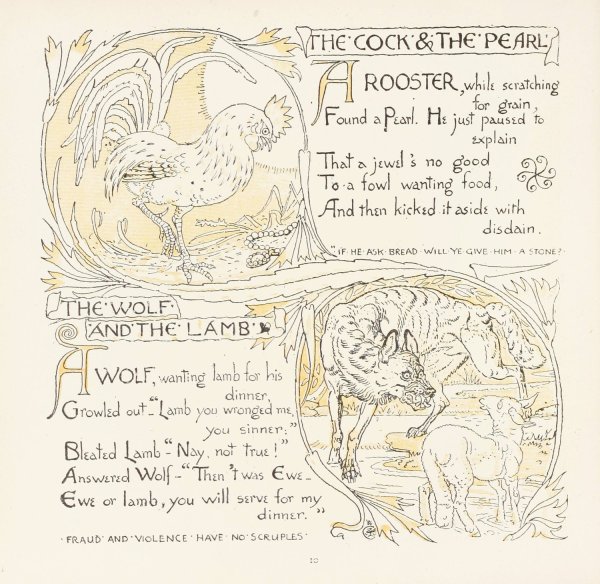 THE · COCK · & · THE · PEARL
A ROOSTER, while scratching
for grain,
Found a Pearl. He just paused to
explain
That a jewel's no good
To a fowl wanting food,
And then kicked it aside with
disdain.
"IF · HE · ASK · BREAD · WILL · YE · GIVE · HIM · A · STONE?
THE · WOLF ·
AND · THE · LAMB
A WOLF, wanting lamb for his
dinner,
Growled out—"Lamb you wronged me,
you sinner;"
Bleated Lamb—"Nay, not true!"
Answered Wolf—"Then 't was Ewe—
Ewe or lamb, you will serve for my
dinner."
· FRAUD · AND · VIOLENCE · HAVE · NO · SCRUPLES ·
10